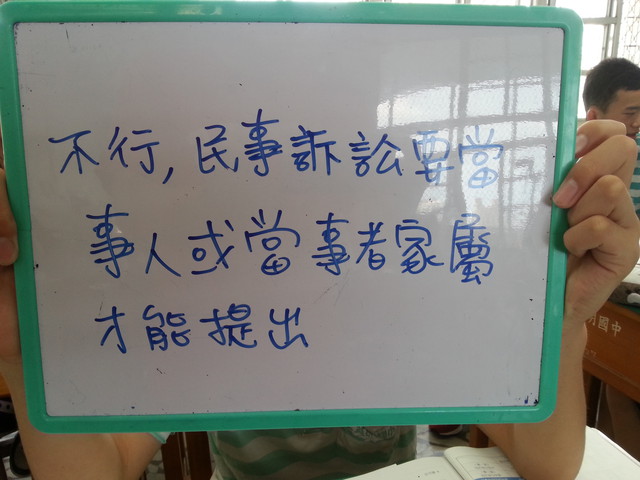 不行,民事訴訟要當
事人或當事者家屬
才能提出
國中